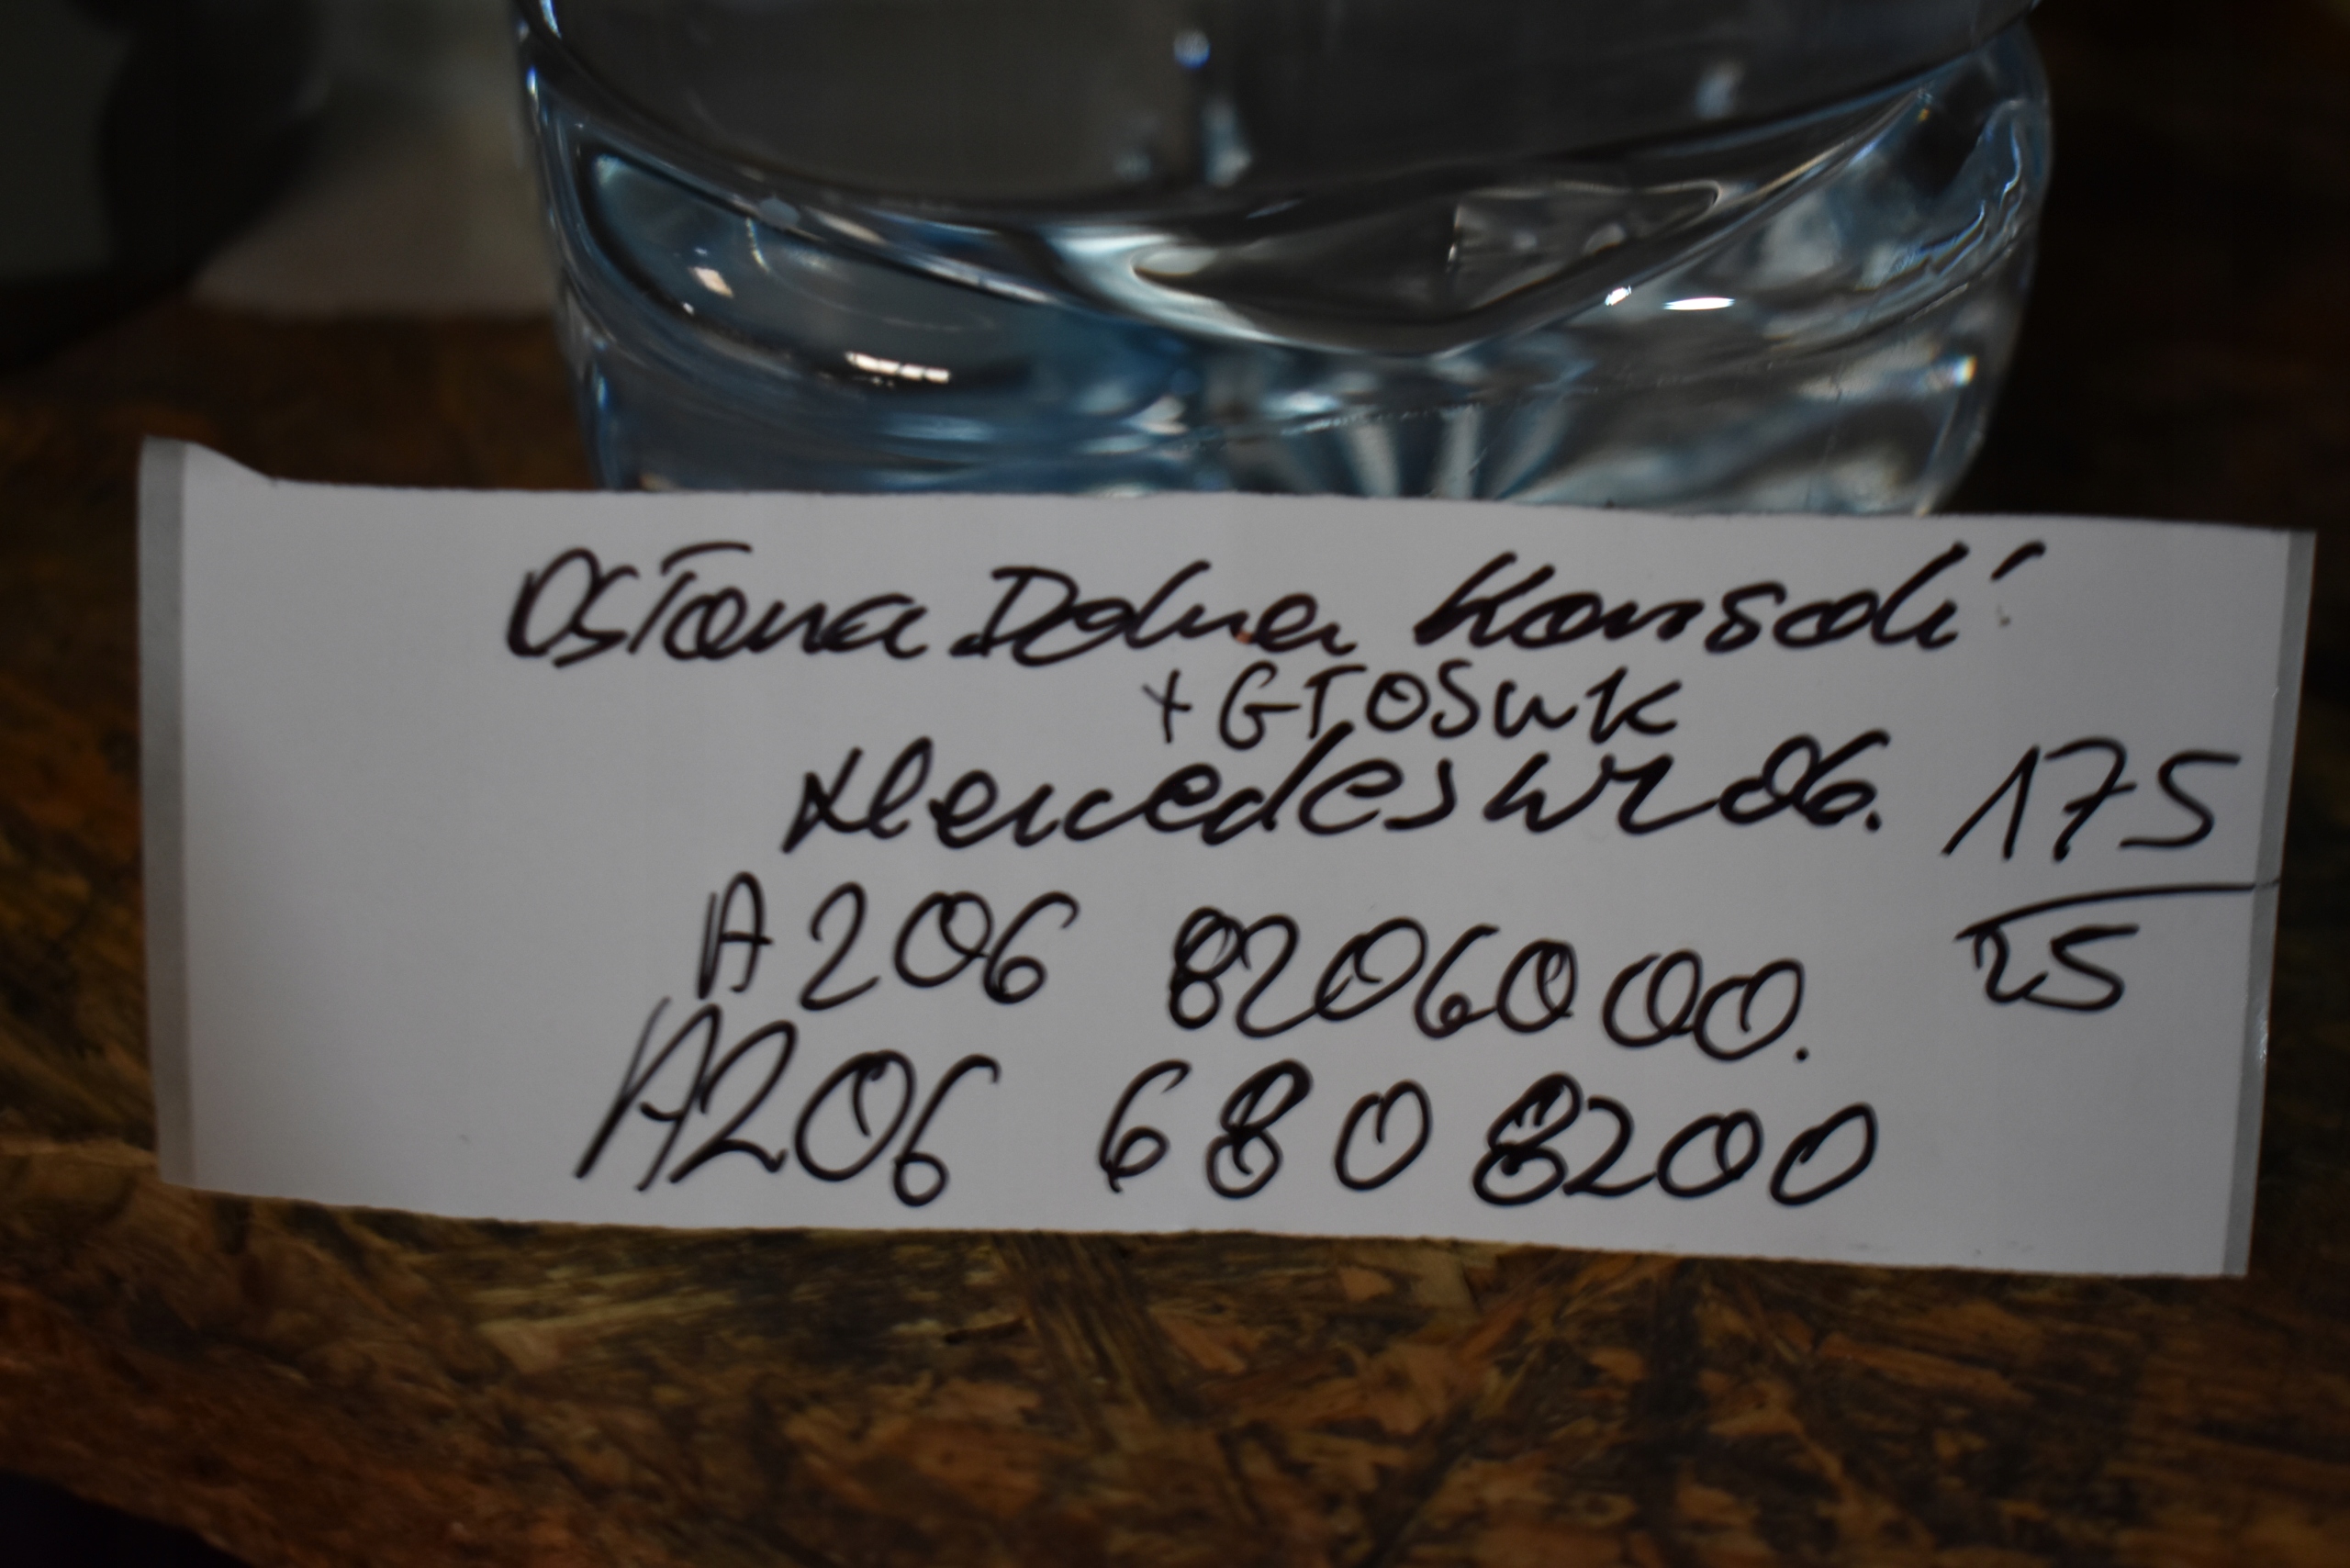 Osłona Dolna Konsoli
+ GŁOSNIK
Mercedes W206. 175
25
A206 8206000.
A206 680 8200